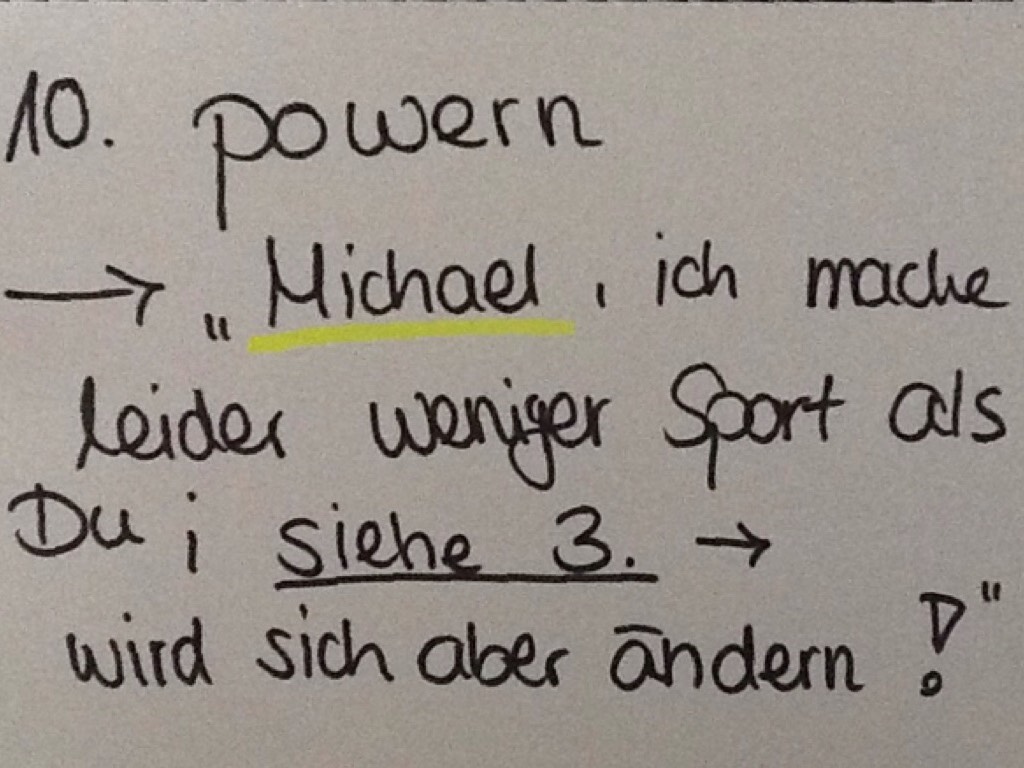 10. powern
→ „Michael, ich mache
leider weniger Sport als
Du ; siehe 3. →
wird sich aber ändern !"